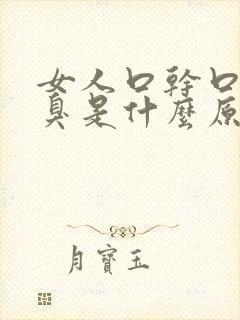 女人口幹口
臭是什麼原
月寶玉